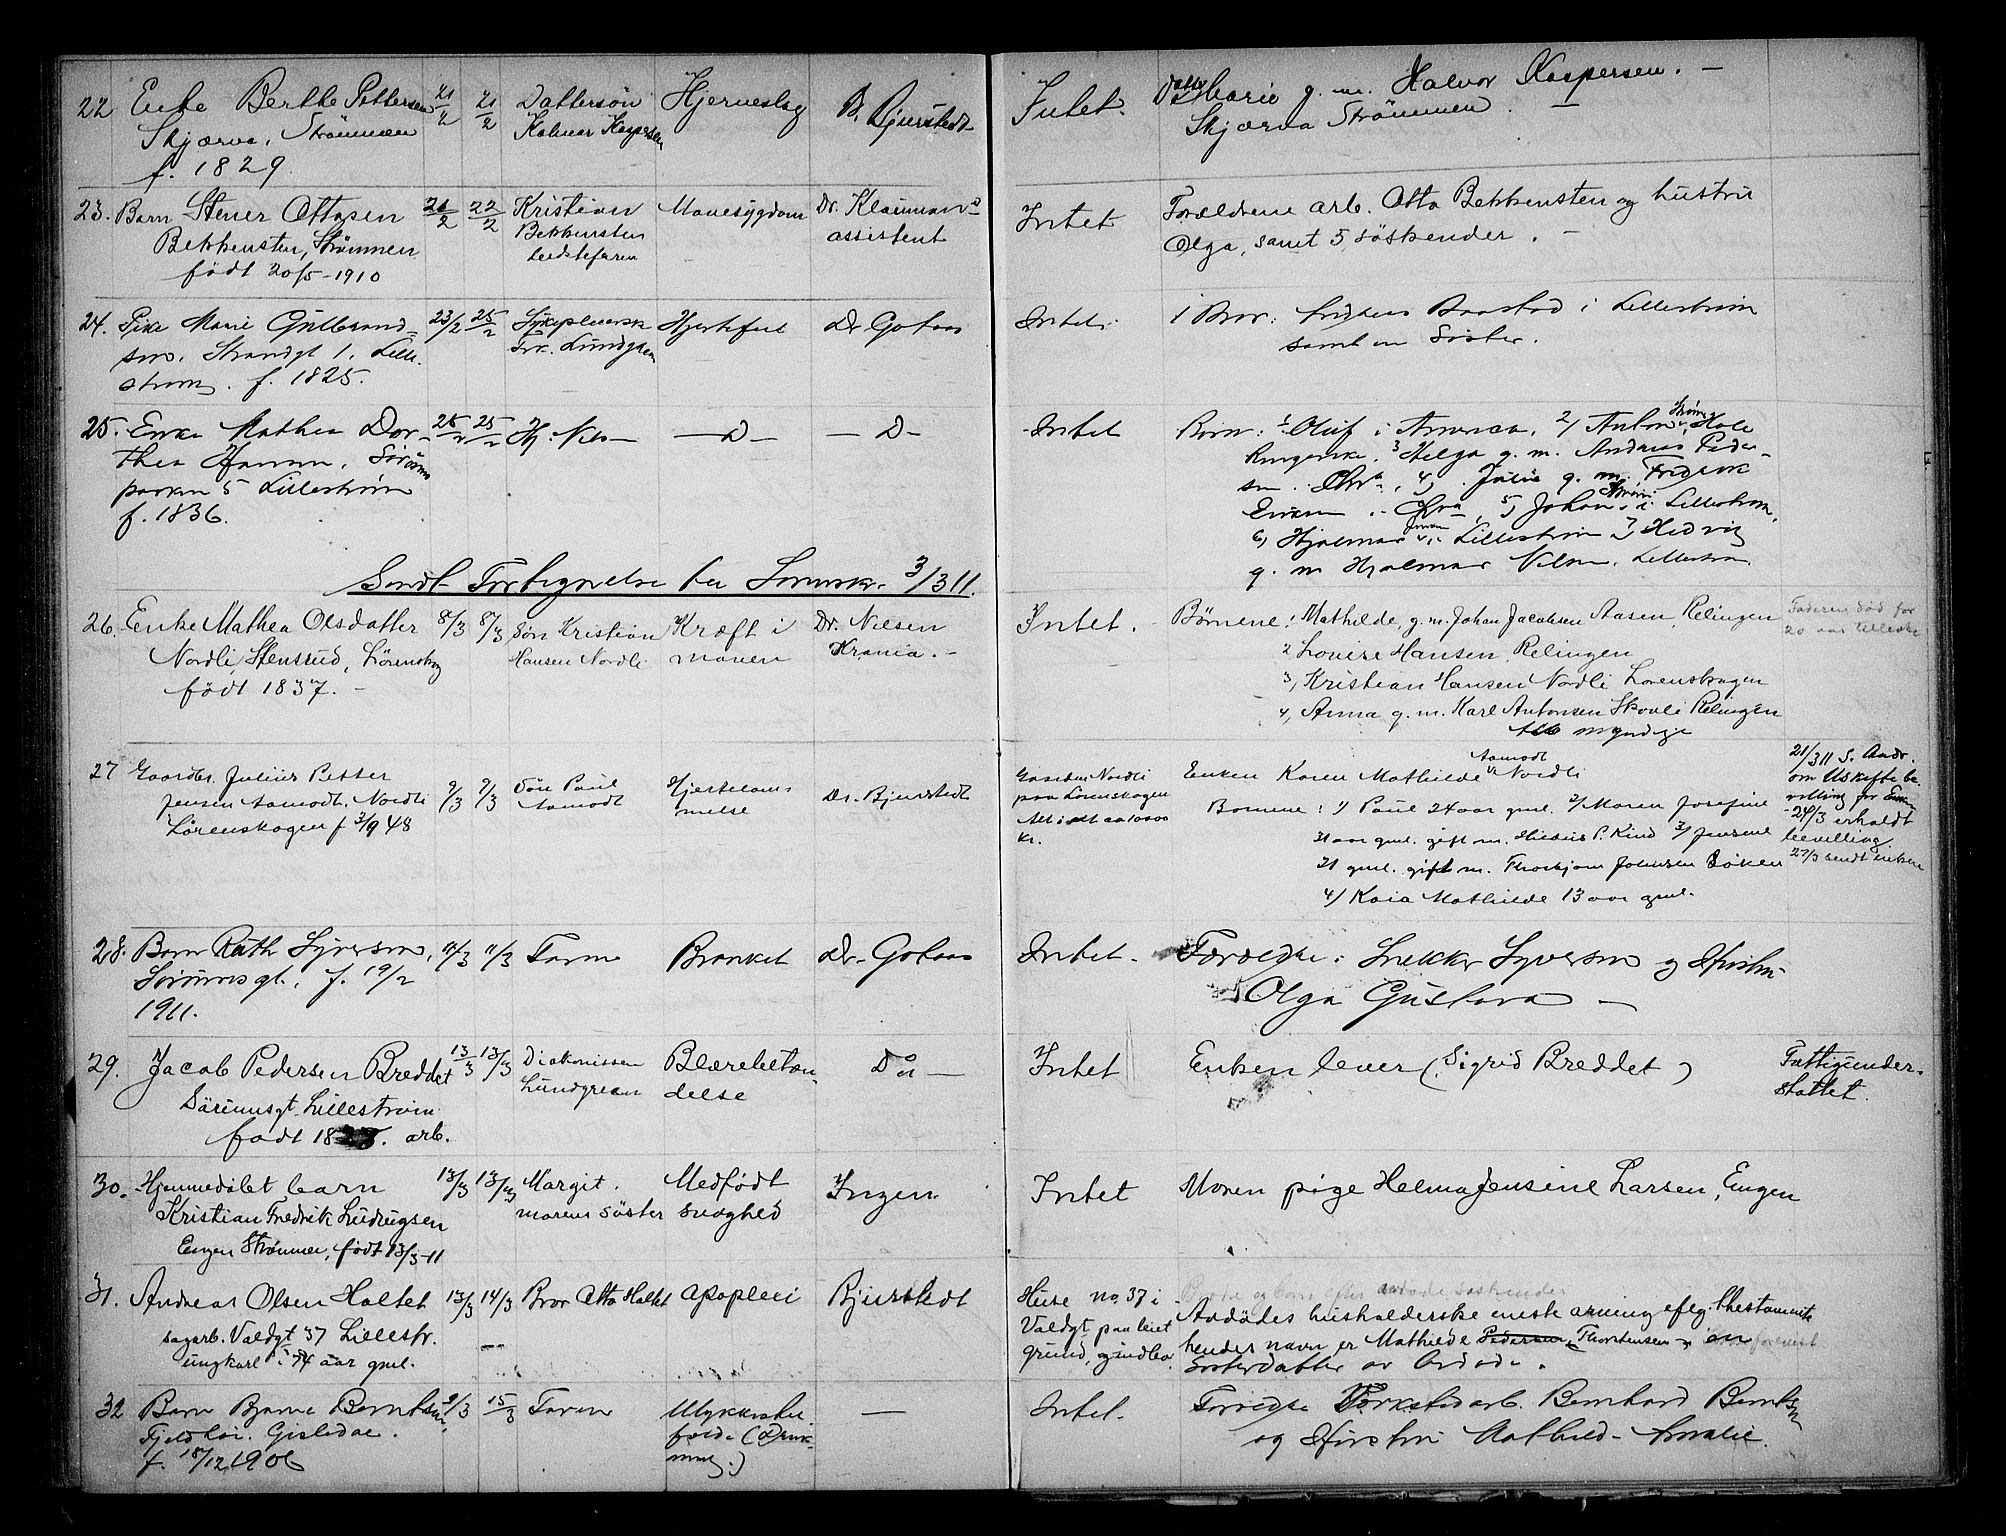 22 Enke Berthe Pettersen 21/2 21/2 Dattersön Hjerneslag B. Bjurstedt Intet. Datter Marie g. m. Halvor Kaspersen. —
Skjærva, Strömmen Kalmar Kaspersen Skjærva Strömmen.
f. 1829.
23. Barn Stener Ottosen 21/2 22/2 Kristian Mavesygdom Dr. Klouman s Intet Forældrene arb. Otto Bekkensten og hustru
Bekkensten, Strømmen Bekkensten assistent Olga, samt 5 söskender. —
født 20/5 - 1910 bedstefaren
24. Pike Marie Gulbrand- 23/2 25/2 Sykepleierske Hjertefeil Dr Gotaas Intet. 1 Bror: Baastad i Lillestrøm
sen. Strandgt 1. Lille- Frk. Lundgren samt en Søster.
strøm. f. 1825.
25. Enke Mathea Dor- 25/2 25/2 Hj. — D — — D — Intet Børn: 1 Oluf i Amerika, 2) Anton Hole
thea Hansen, Sørum Ringerike. 3 Helga g. m. Andreas Peder-
parken 5 Lillestrøm sen. Chra, 4) Julie g. m. Fredrik
f. 1836. Chra, 5) Johan i Lillestrøm,
6) Hjalmar i Lillestrøm 7 Hedvig
g. m Hjalmar Nilsen. Lillestrøm.
Sendt Fortegnelse til Sorensk. 3/3 11.
26. Enke Mathea Olsdatter 8/3 8/3 Søn Kristian Kræft i Dr. Nilsen Intet. Børnene: Mathilde, g. m. Johan Jacobsen Aasen, Relingen Faderen død for
Nordli, Stensrud, Lörenskog Hansen Nordli maven Krania. — 2 Lovise Hansen, Relingen 20 aar
født 1837. — 3, Kristian Hansen Nordli Lørenskogen
4, Anna g. m. Karl Antonsen Skovli Relingen
Alle myndige
27 Gaardbr. Julius Petter 9/3 9/3 Søn Paul Hjertelam- Dr. Bjurstedt Gaarden Nordli Enken Karen Mathilde Aamodt Nordli 21/3 11 S. Andr.
Jensen Aamodt. Nordli Aamodt melse paa Lørenskogen Børnene: 1) Paul 24 aar gml. 2/ Maren Josefine om Uskifte be-
Lörenskogen f 3/9 48 Alt i alt ca 10000 31 aar gml. gift m. P. Kind 3/ Jensine villing for Enken
kr. 21 gml. gift m. Thorbjørn Johnsen - 24/3 erholdt
4) Kaia Mathilde 13 aar gml. bevilling.
27/3 sendt enken
28. Barn Ruth Syversen, 11/3 11/3 Faren Bronkit Dr. Gotaas Intet. Forældre: Snekker Syversen og Hustru
Sørumsgt. f. 19/2 Olga Gustava —
1911.
29. Jacob Pedersen Breddet 13/3 13/3 Diakonisse Blærebetæn- Do — Intet Enken lever (Sigrid Breddet) Fattigunder-
Sörumsgt. Lillestrøm Lundgreen delse støttet.
født 18 arb.
30. Hjemmedøbt barn 13/3 13/3 Margit. Medfødt Ingen Intet Moren pige Helma Jensine Larsen, Engen
Kristian Fredrik Ludvigsen morens søster svaghed
Engen Strømmen, født 13/3-11
31. Andreas Olsen Haltet 13/3 14/3 Bror Otto Haltet apoplexi Bjurstedt Huse no. 37 i
sagarb. Valdgt 37 Lillestr. Valdgt. paa leiet Avdødes husholderske eneste arving efter thestamente
ungkarl i 74 aar gml. grund, og indbo. hendes navn er Mathilde Pedersen Thorstensen
Søsterdatter av Avdøde.
32 Barn Bjarne Berntsen 9/3 15/3 Faren Ulykkestil- — Intet. Forældre Verkstedarb. Bernhard Berntsen
fælde (Druk- og Hustru Mathilde Amalie.
f. 18/12 1906 ning.)